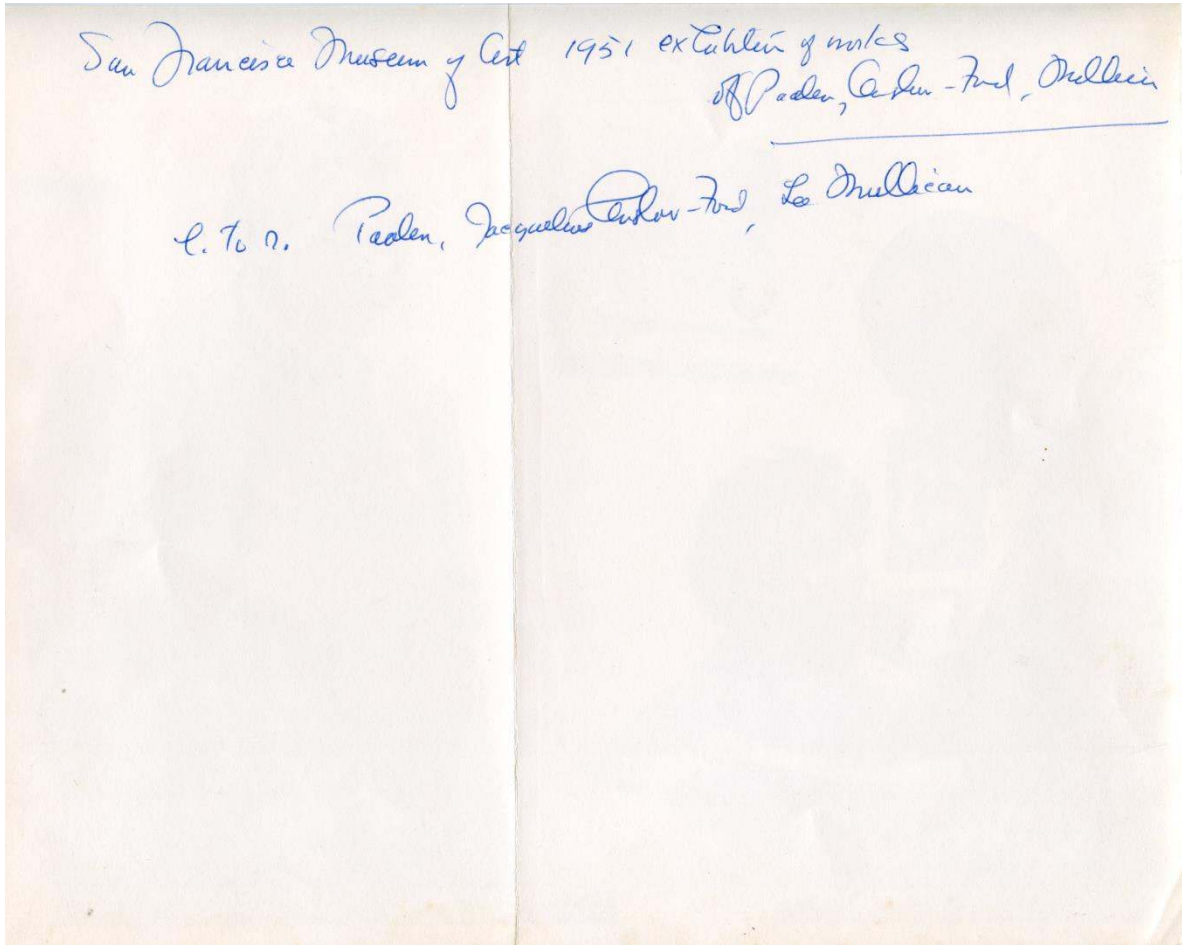 San Francisco Museum of Art 1951 exhibition of works
of Paalen, Onslow-Ford, Mullican
l. to r. Paalen, Jacqueline Onslow-Ford, Lee Mullican